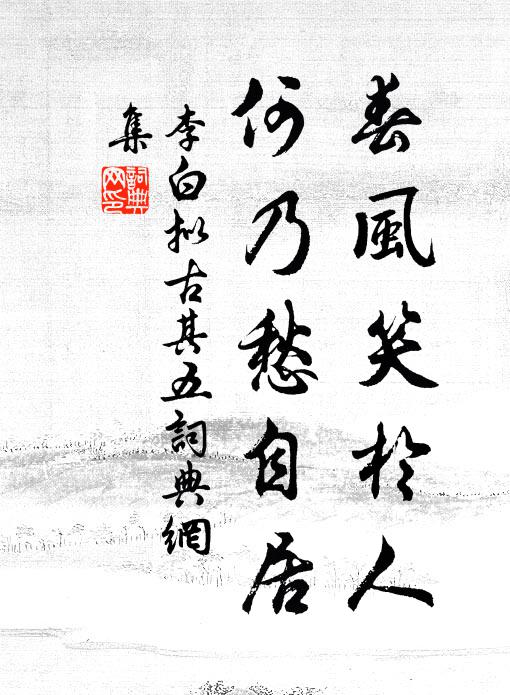 春風笑於人
何乃愁自居
李白拟古其五詞典網
集
詞典網印